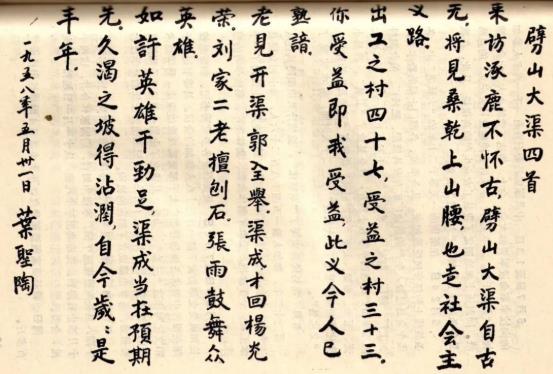 劈山大渠四首
来访涿鹿不怀古,劈山大渠自古
无.将見桑乾上山腰,也走社会主
义路.
出工之村四十七,受益之村三十三.
你受益即我受益,此义今人已
熟諳.
老見开渠郭全舉.渠成才回楊尧
荣.刘家二老擅刨石.張雨鼓舞众
英雄.
如許英雄干勁足,渠成当在預期
先.久渴之坡得沾潤,自今歲:是
丰年.
一九五八年五月卅一日 葉聖陶